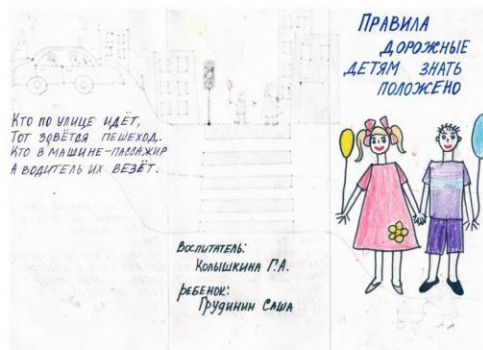 Кто по улице идёт,
Тот зовётся пешеход.
Кто в машине-пассажир
А водитель их везёт.
Воспитатель:
Колышкина Г.А.
Ребенок:
Грудинин Саша
Правила
дорожные
детям знать
положено